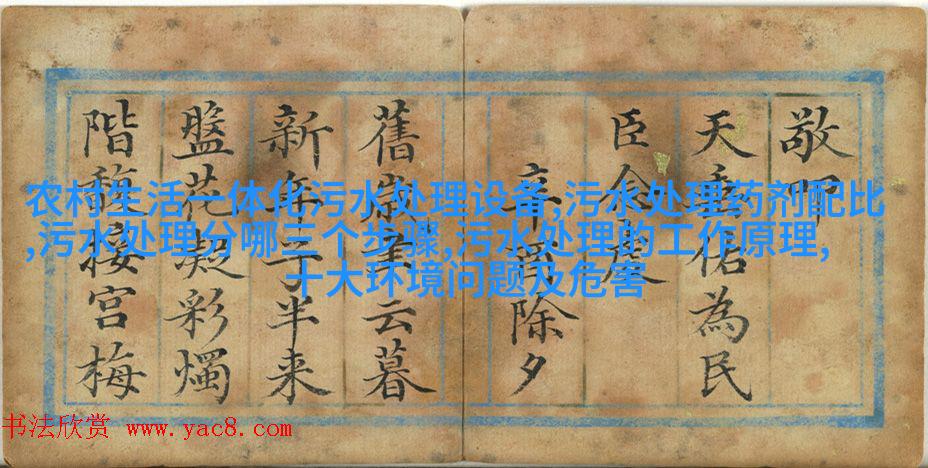 敬叩
天垂佑為民
臣
辛酉除夕
舊歲云暮
新年子半来
盤花凝彩燭
階馥接宮梅
农村生活一体化污水处理设备,污水处理药剂配比
,污水处理分哪三个步骤,污水处理的工作原理,
十大环境问题及危害
书法欣赏 www.yac8.com